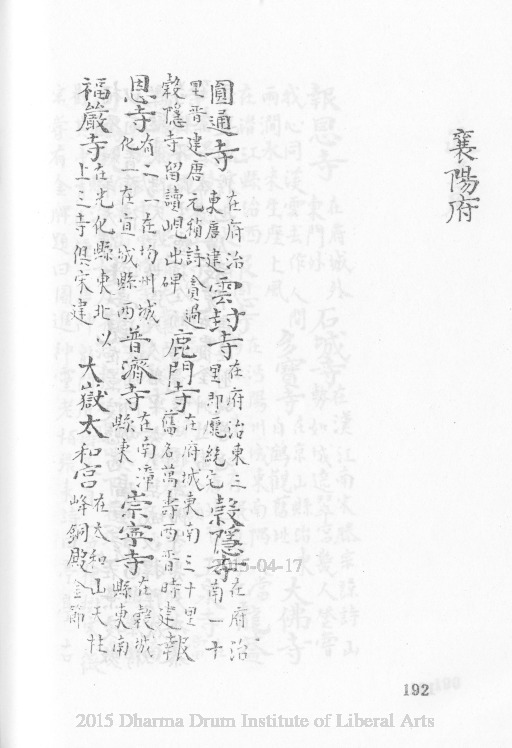 襄陽府
圓通寺在府治東唐建雲封寺在府治東三里即龐統宅穀隱寺在府治南一十
里晉建唐元稹詩貪過穀隱寺留讀峴出碑鹿門寺在府城東南三十里舊名萬壽西晉時建報
恩寺有二一在均州城化一在宜城縣西普濟寺在南漳縣東崇寧寺在穀城縣東南
福嚴寺在光化縣東北以上三寺俱宋建大嶽太和宮在太和山天柱峰銅殿金飾
2015-04-17
192
2015 Dharma Drum Institute of Liberal Arts